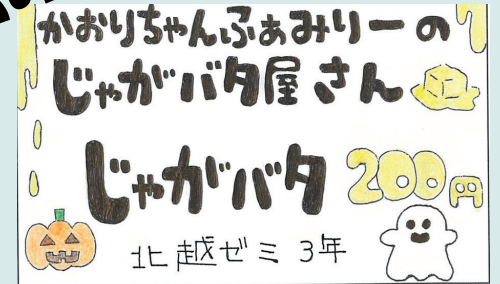 かおりちゃんふぁみりーの
じゃがバタ屋さん
じゃがバタ 200円
北越ゼミ 3年